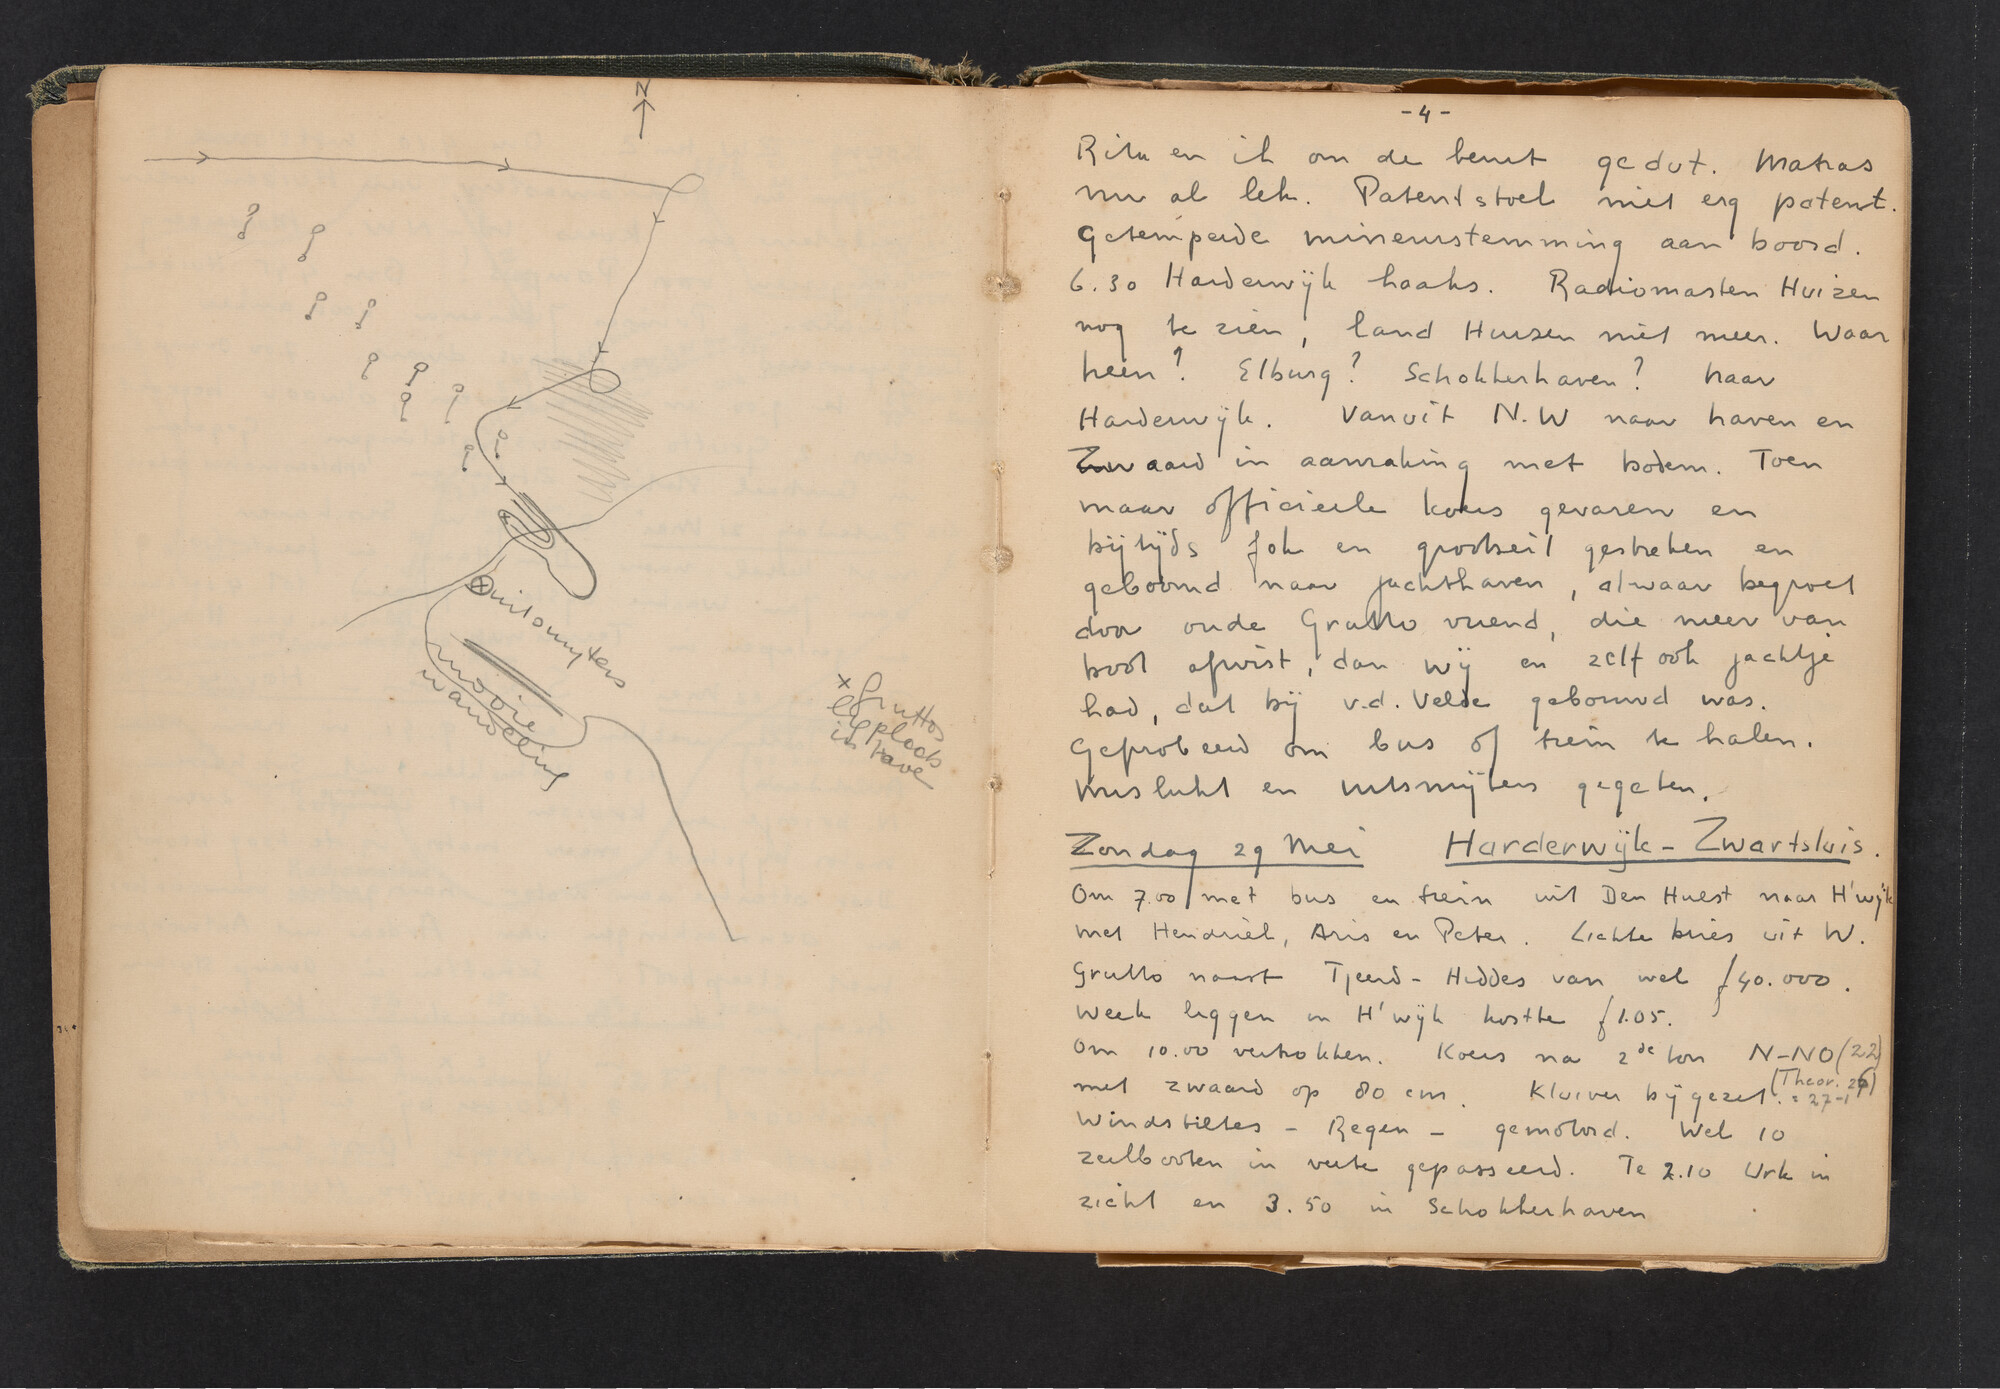 N
uitsmyters
mooie
wandeling
x Grutto's
ligplaats
in Have
- 4 -
Rita en ik om de beurt gedut. Matras
nu al lek. Patentstoel niet erg patent.
Getemperde mineurstemming aan boord.
6.30 Harderwijk haaks. Radiomasten Huizen
nog te zien, land Huizen niet meer. Waar
heen? Elburg? Schokkerhaven? naar
Harderwijk. Vanuit N.W naar haven en
Zwaard in aanraking met bodem. Toen
maar officieele koers gevaren en
bijtijds fok en grootzeil gestreken en
geboomd naar jachthaven, alwaar begroet
door oude Grutto vriend, die meer van
boot afwist, dan wij en zelf ook jachtje
had, dat bij v.d. Velde gebouwd was.
Geprobeerd om bus of trein te halen.
Mislukt en uitsmijters gegeten.
Zondag 29 Mei Harderwijk - Zwartsluis.
Om 7.00 met bus en trein uit Den Hulst naar H'wijk
met Hendriek, Aris en Peter. Lichte bries uit W.
Grutto naast Tjeerd-Hiddes van wel f 40.000.
Week liggen in H'wijk kostte f 1.05.
Om 10.00 vertrokken. Koers na 2de ton N-NO (22)
met zwaard op 80 cm. Kluiver bijgezet. (Theor. 26)
= 27-1
Windstiltes - Regen - gemotord. Wel 10
zeilbooten in verte gepasseerd. Te 2.10 Urk in
zicht en 3.50 in Schokkerhaven